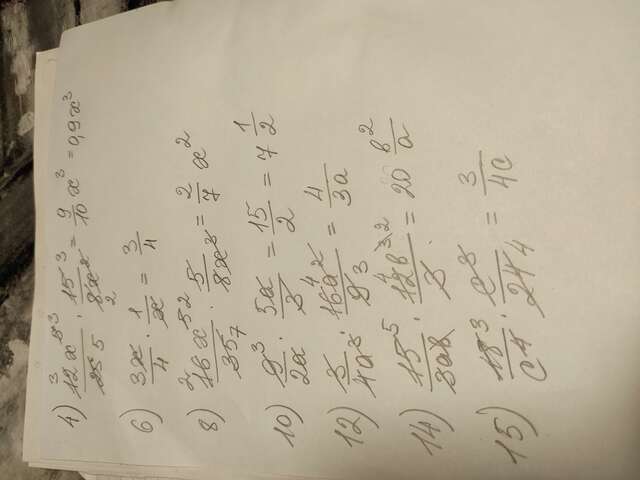 4) \frac{12x^5}{25} · \frac{15}{8x^2} = \frac{9}{10}x^3 = 0,9x^3
6) \frac{3x}{4} · \frac{1}{x} = \frac{3}{4}
8) \frac{16x^5}{35} · \frac{5}{8x^3} = \frac{2}{7}x^2
10) \frac{9}{2x} · \frac{5x}{3} = \frac{15}{2} = 7\frac{1}{2}
12) \frac{3}{4a^3} · \frac{16a^2}{9} = \frac{4}{3a}
14) \frac{15}{3ab} · \frac{12b^3}{3} = 20\frac{b^2}{a}
15) \frac{18}{c^4} · \frac{c^5}{24} = \frac{3}{4c}